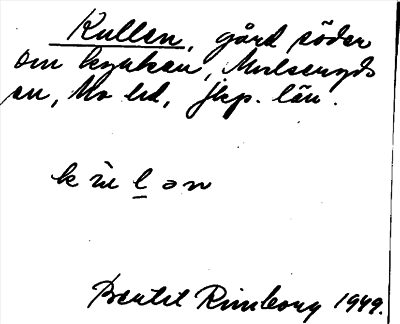 Kullen, gård söder
om kyrkan, Mulseryds
sn, Mo hd, Jkp. län.
k ù l ə n
Bertil Rimborg 1949.